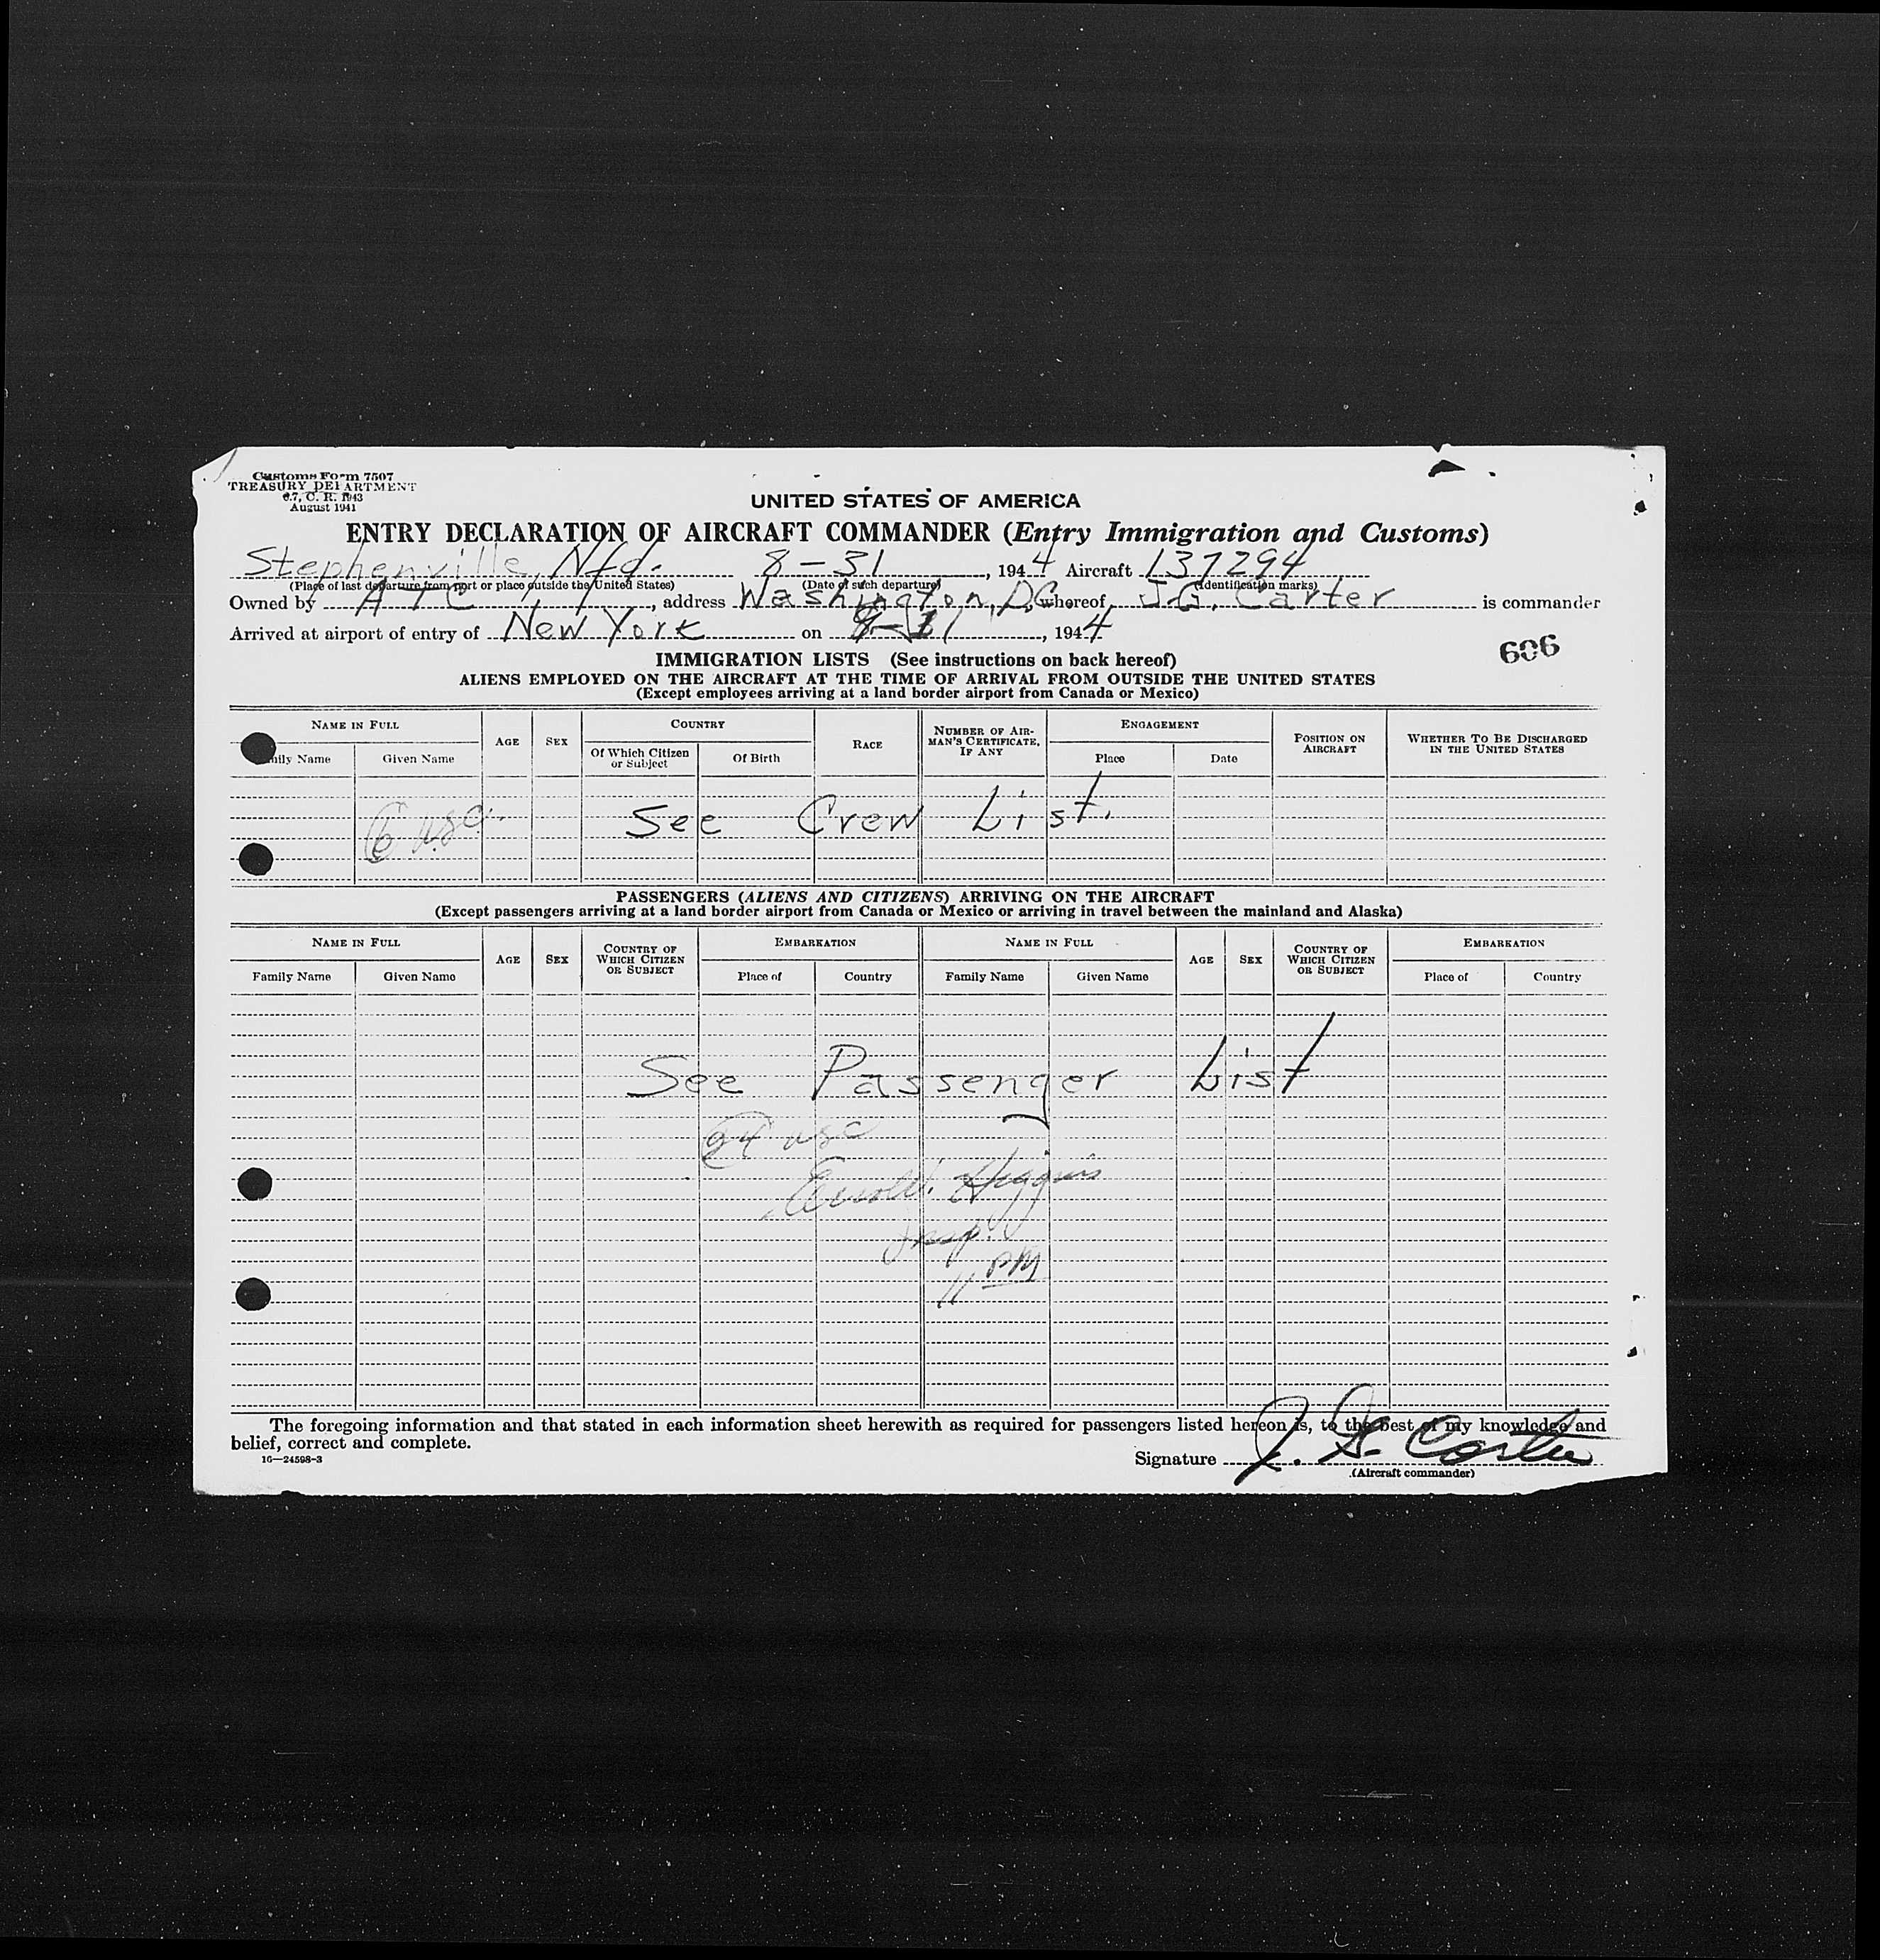 Customs Form 7507
TREASURY DEPARTMENT
6.7, C. R. 1943
August 1941
UNITED STATES OF AMERICA
ENTRY DECLARATION OF AIRCRAFT COMMANDER (Entry Immigration and Customs)
Stephenville, Nfd. 8-31, 1944 Aircraft 137294
(Place of last departure from port or place outside the United States) (Date of such departure) (Identification marks)
Owned by ATC, address Washington, DC, whereof J.G. Carter is commander
Arrived at airport of entry of New York on 8-31, 1944
606
IMMIGRATION LISTS (See instructions on back hereof)
ALIENS EMPLOYED ON THE AIRCRAFT AT THE TIME OF ARRIVAL FROM OUTSIDE THE UNITED STATES
(Except employees arriving at a land border airport from Canada or Mexico)
NAME IN FULL AGE SEX COUNTRY RACE NUMBER OF AIRMAN'S CERTIFICATE, IF ANY ENGAGEMENT POSITION ON AIRCRAFT WHETHER TO BE DISCHARGED IN THE UNITED STATES
Family Name Given Name Of Which Citizen or Subject Of Birth Place Date
See Crew List.
6 usc.
PASSENGERS (ALIENS AND CITIZENS) ARRIVING ON THE AIRCRAFT
(Except passengers arriving at a land border airport from Canada or Mexico or arriving in travel between the mainland and Alaska)
NAME IN FULL AGE SEX COUNTRY OF WHICH CITIZEN OR SUBJECT EMBARKATION NAME IN FULL AGE SEX COUNTRY OF WHICH CITIZEN OR SUBJECT EMBARKATION
Family Name Given Name Place of Country Family Name Given Name Place of Country
See Passenger List
24 usc
Higgins
Insp.
11 PM
The foregoing information and that stated in each information sheet herewith as required for passengers listed hereon is, to the best of my knowledge and
belief, correct and complete.
16—24598-3
Signature J. G. Carter
(Aircraft commander)